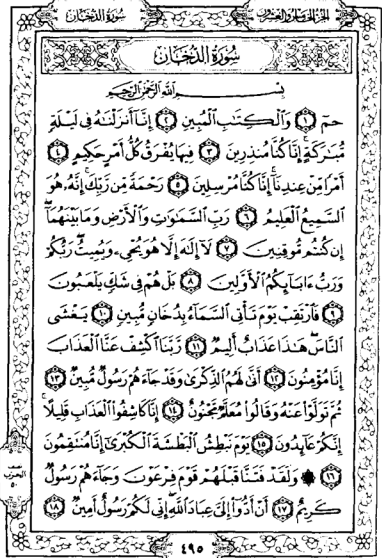 الجزء الخامس والعشرون
سورة الدخان
سُورَةُ الدُّخَانِ
بِسْمِ اللَّهِ الرَّحْمَٰنِ الرَّحِيمِ
حمٓ ١ وَٱلْكِتَٰبِ ٱلْمُبِينِ ٢ إِنَّآ أَنزَلْنَٰهُ فِى لَيْلَةٍ
مُّبَٰرَكَةٍ إِنَّا كُنَّا مُنذِرِينَ ٣ فِيهَا يُفْرَقُ كُلُّ أَمْرٍ حَكِيمٍ ٤
أَمْرًا مِّنْ عِندِنَآ إِنَّا كُنَّا مُرْسِلِينَ ٥ رَحْمَةً مِّن رَّبِّكَ إِنَّهُۥ هُوَ
ٱلسَّمِيعُ ٱلْعَلِيمُ ٦ رَبِّ ٱلسَّمَٰوَٰتِ وَٱلْأَرْضِ وَمَا بَيْنَهُمَآ
إِن كُنتُم مُّوقِنِينَ ٧ لَآ إِلَٰهَ إِلَّا هُوَ يُحْىِۦ وَيُمِيتُ رَبُّكُمْ
وَرَبُّ ءَابَآئِكُمُ ٱلْأَوَّلِينَ ٨ بَلْ هُمْ فِى شَكٍّ يَلْعَبُونَ
٩ فَٱرْتَقِبْ يَوْمَ تَأْتِى ٱلسَّمَآءُ بِدُخَانٍ مُّبِينٍ ١٠ يَغْشَى
ٱلنَّاسَ هَٰذَا عَذَابٌ أَلِيمٌ ١١ رَّبَّنَا ٱكْشِفْ عَنَّا ٱلْعَذَابَ
إِنَّا مُؤْمِنُونَ ١٢ أَنَّىٰ لَهُمُ ٱلذِّكْرَىٰ وَقَدْ جَآءَهُمْ رَسُولٌ مُّبِينٌ ١٣
ثُمَّ تَوَلَّوْا۟ عَنْهُ وَقَالُوا۟ مُعَلَّمٌ مَّجْنُونٌ ١٤ إِنَّا كَاشِفُوا۟ ٱلْعَذَابِ قَلِيلًا
إِنَّكُمْ عَآئِدُونَ ١٥ يَوْمَ نَبْطِشُ ٱلْبَطْشَةَ ٱلْكُبْرَىٰٓ إِنَّا مُنتَقِمُونَ
١٦ ۞ وَلَقَدْ فَتَنَّا قَبْلَهُمْ قَوْمَ فِرْعَوْنَ وَجَآءَهُمْ رَسُولٌ
كَرِيمٌ ١٧ أَنْ أَدُّوٓا۟ إِلَىَّ عِبَادَ ٱللَّهِ إِنِّى لَكُمْ رَسُولٌ أَمِينٌ ١٨
٤٩٥